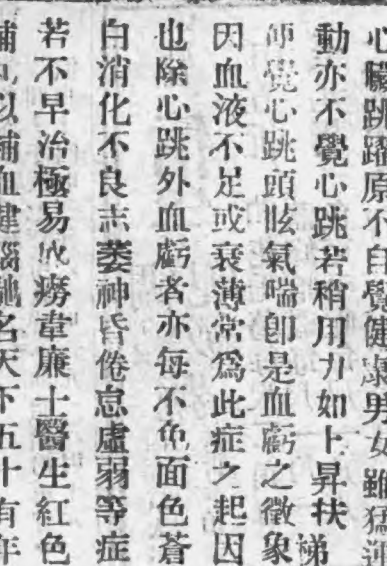 心臟跳躍原不自覺健康男女雖猛運
動亦不覺心跳若稍用力如上昇扶梯
便覺心跳頭眩氣喘卽是血虧之徵象
因血液不足或衰薄常爲此症之起因
也除心跳外血虧者亦每不免面色蒼
白消化不良志萎神昏倦怠虛弱等症
若不早治極易成癆韋廉士醫生紅色
補丸以補血健腦馳名天下五十有年